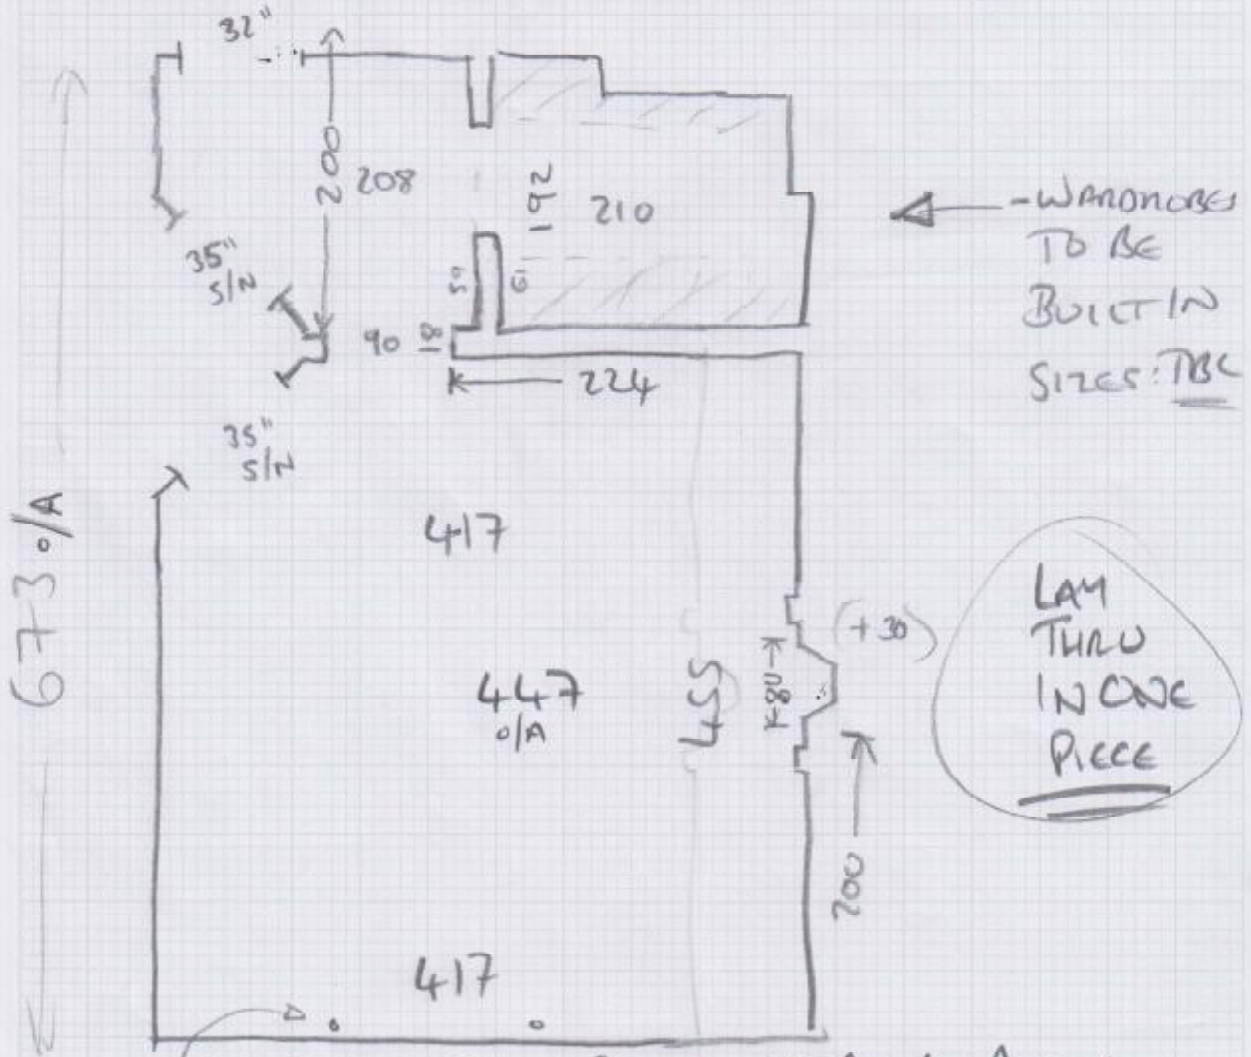 32"
200
208
192
210
- WARDROBES
TO BE
BUILT IN
SIZES: TBC
35"
S/N
59
61
90
18
224
35"
S/N
673 o/A
417
447
o/A
455
80
(+30)
LAY
THRU
IN ONE
PIECE
200
417